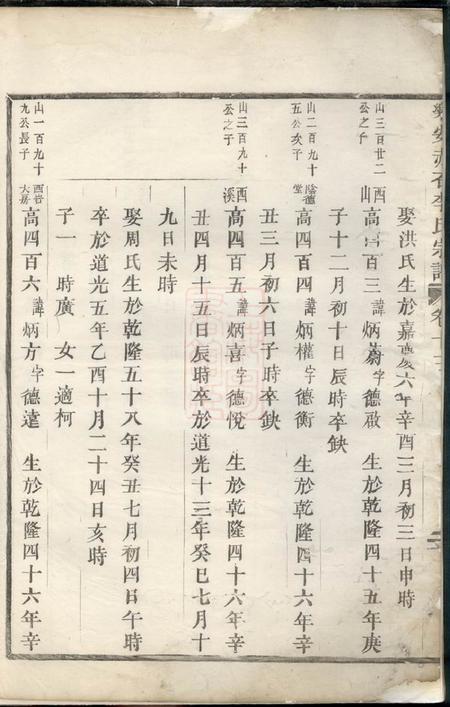 娶洪氏生於嘉慶六年辛酉三月初三日申時
山三百廿二公之子
西山
高四百三諱炳蔚字德啟 生於乾隆四十五年庚
子十二月初十日辰時卒缺
山二百九十五公次子
陰德堂
高四百四諱炳權字德衡 生於乾隆四十六年辛
丑三月初六日子時卒缺
山三百九十公之子
西溪
高四百五諱炳喜字德悅 生於乾隆四十六年辛
丑四月十五日辰時卒於道光十三年癸巳七月十
九日未時
娶周氏生於乾隆五十八年癸丑七月初四日午時
卒於道光五年乙酉十月二十四日亥時
子一 時廣 女一適柯
山一百九十九公長子
大房
高四百六諱炳方字德達 生於乾隆四十六年辛